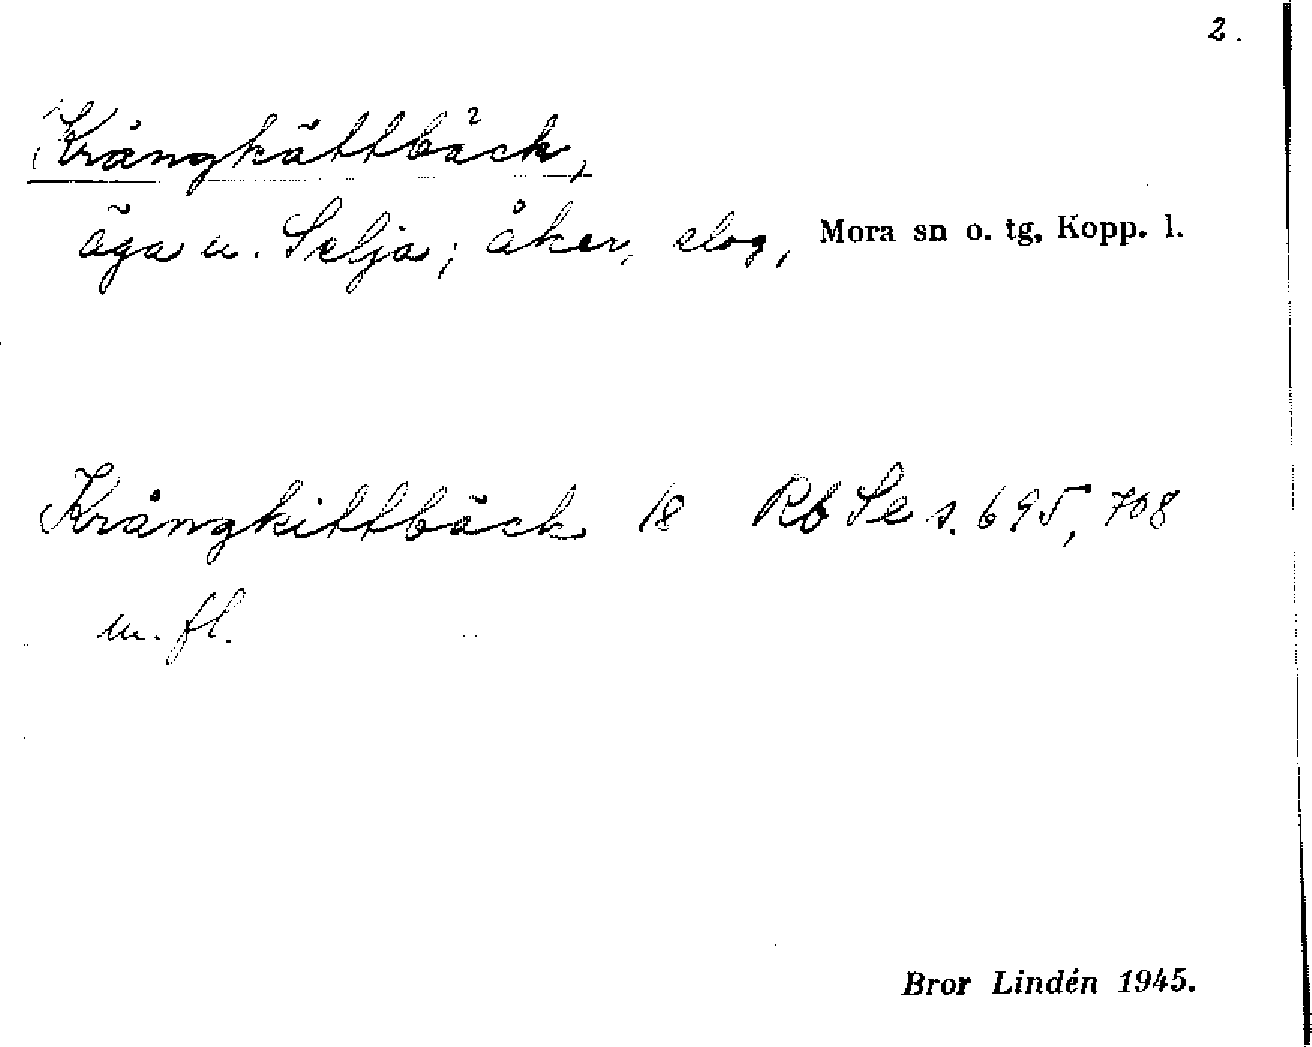 2.
Krångkättbäck,
äga u. Selja; åker, slog, Mora sn o. tg, Kopp. l.
Krångkittbäck 18 Rb Se s. 695, 708
m. fl.
Bror Lindén 1945.